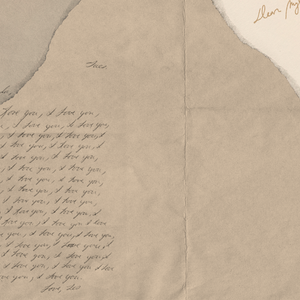 Dear my
love you, I love you,
I love you, I love you,
I love you, I love you, I
I love you, I love you, I
I love you, I love you,
I love you, I love you,
I love you, I love you,
I love you, I love you,
I love you, I love you,
I love you, I love you, I
love you, I love you I love
you, I love you, I love you,
I love you, I love you, I
I love you, I love you,
I love you, I love you, I love
you, I love you.
Love,